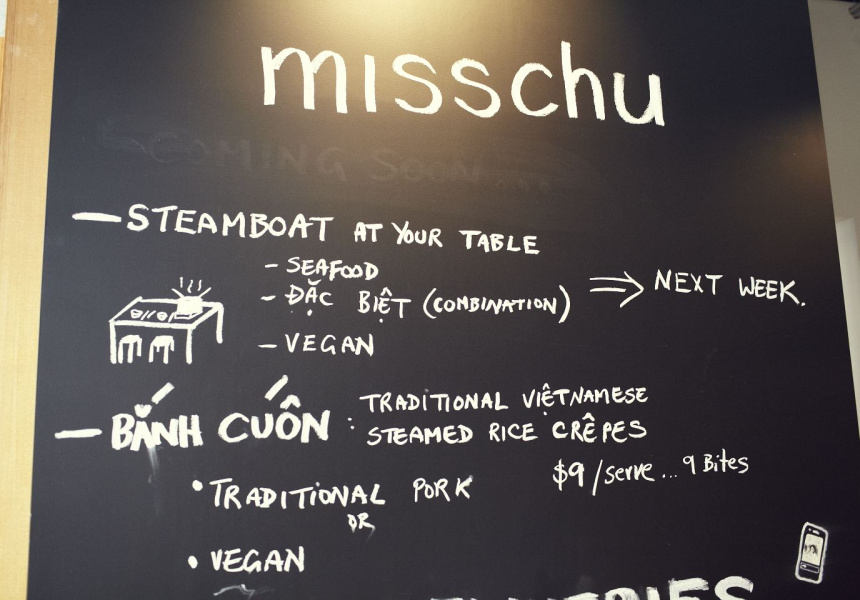 misschu
COMING SOON ...
— STEAMBOAT AT YOUR TABLE
- SEAFOOD
- ĐẶC BIỆT (COMBINATION) ⇒ NEXT WEEK.
- VEGAN
— BẮNH CUỐN : TRADITIONAL VIỆTNAMESE
STEAMED RICE CRÊPES
$9/serve ... 9 Bites
• TRADITIONAL PORK
OR
• VEGAN